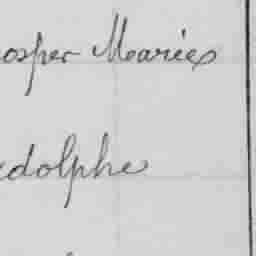 osper Marie
dolphe